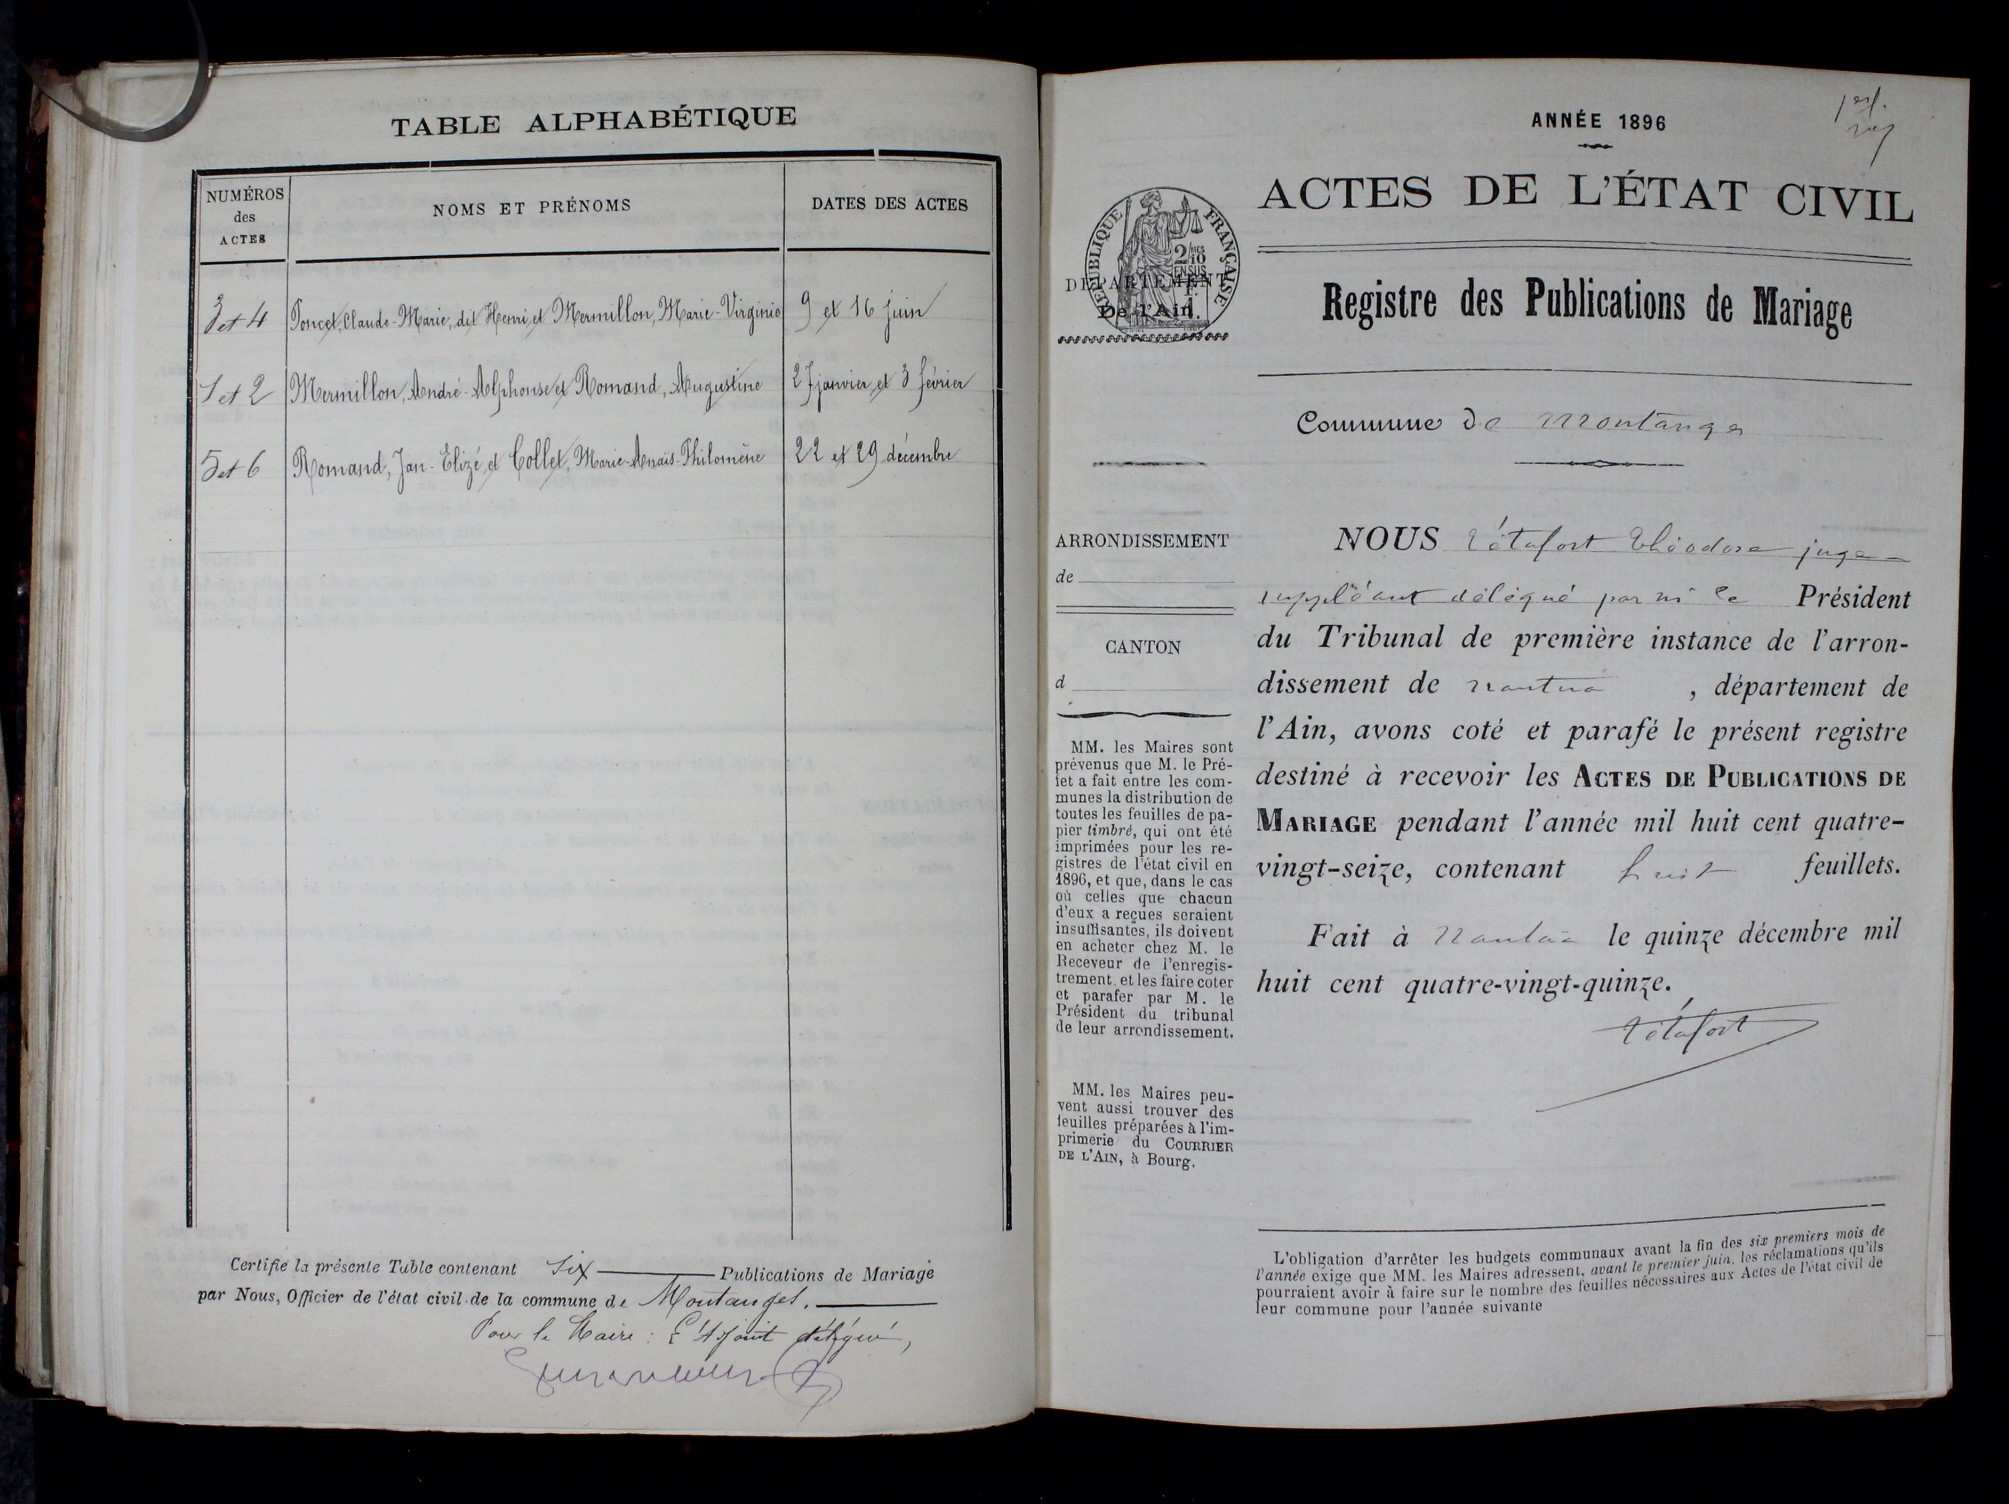 TABLE ALPHABÉTIQUE
NUMÉROS
des
ACTES
NOMS ET PRÉNOMS
DATES DES ACTES
3 et 4 Poncet, Claude-Marie, dit Henri, et Mermillon, Marie-Virginie 9 et 16 juin
1 et 2 Mermillon, André-Alphonse et Romand, Augustine 27 janvier et 3 février
5 et 6 Romand, Jean-Elizé, et Collet, Marie-Anaïs-Philomène 22 et 29 décembre
Certifié la présente Table contenant six Publications de Mariage
par Nous, Officier de l'état civil de la commune de Montanges.
Pour le Maire : L'Adjoint délégué,
ANNÉE 1896
ACTES DE L'ÉTAT CIVIL
RÉPUBLIQUE FRANÇAISE
DÉPARTEMENT
De l'Ain.
Registre des Publications de Mariage
Commune de Montanges
ARRONDISSEMENT
de
CANTON
d
MM. les Maires sont
prévenus que M. le Pré-
fet a fait entre les com-
munes la distribution de
toutes les feuilles de pa-
pier timbré, qui ont été
imprimées pour les re-
gistres de l'état civil en
1896, et que, dans le cas
où celles que chacun
d'eux a reçues seraient
insuffisantes, ils doivent
en acheter chez M. le
Receveur de l'enregis-
trement et les faire coter
et parafer par M. le
Président du tribunal
de leur arrondissement.
MM. les Maires peu-
vent aussi trouver des
feuilles préparées à l'im-
primerie du COURRIER
DE L'AIN, à Bourg.
NOUS Tétafort Théodore juge
suppléant délégué par Mr le Président
du Tribunal de première instance de l'arron-
dissement de Nantua , département de
l'Ain, avons coté et parafé le présent registre
destiné à recevoir les ACTES DE PUBLICATIONS DE
MARIAGE pendant l'année mil huit cent quatre-
vingt-seize, contenant huit feuillets.
Fait à Nantua le quinze décembre mil
huit cent quatre-vingt-quinze.
Tétafort
L'obligation d'arrêter les budgets communaux avant la fin des six premiers mois de
l'année exige que MM. les Maires adressent, avant le premier juin, les réclamations qu'ils
pourraient avoir à faire sur le nombre des feuilles nécessaires aux Actes de l'état civil de
leur commune pour l'année suivante